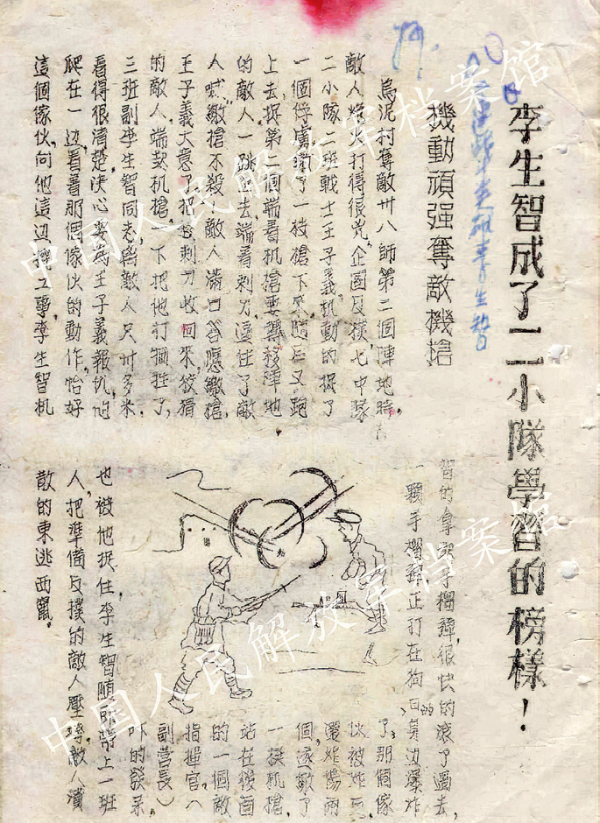 李生智成了二小隊學習的榜樣!
機動頑强奪敵機搶
烏泥村奪敵卅八師第二個陣地時,
敵人炮火打得很兇,企圖反撲,七中隊
二小隊二班戰士王子義機動的捉了
一個俘虜繳了一枝搶下來,隨后又跑
上去捉第二個端着机搶要轉移陣地
的敵人一跳上去端着刺刀逼住了敵
人喊“繳搶不殺!”敵人滿口答應繳搶,
王子義大意了把刺刀收回來狡猾
的敵人端起机搶,一下把他打犧牲了,
三班副李生智同志離敵人只卅多米,
看得很清楚,决心要為王子義報仇,他
爬在一边,看着那個傢伙的動作,恰好
這個傢伙,向他這边工事,李生智机
智的拿起手榴彈,很快的滚了過去,
一顆手榴彈正打在狗日的身边爆炸
了,那個傢
伙被炸死
還炸傷兩
個,還敵了
一挺机搶,
站在後面
的一個敵
指揮官(
副營長)
吓的發呆
也被他捉住,李生智随即帶上一班
人,把準備反撲的敵人壓垮,敵人潰
散的東逃西竄。
中国人民解放军档案馆
中国人民解放军档案馆